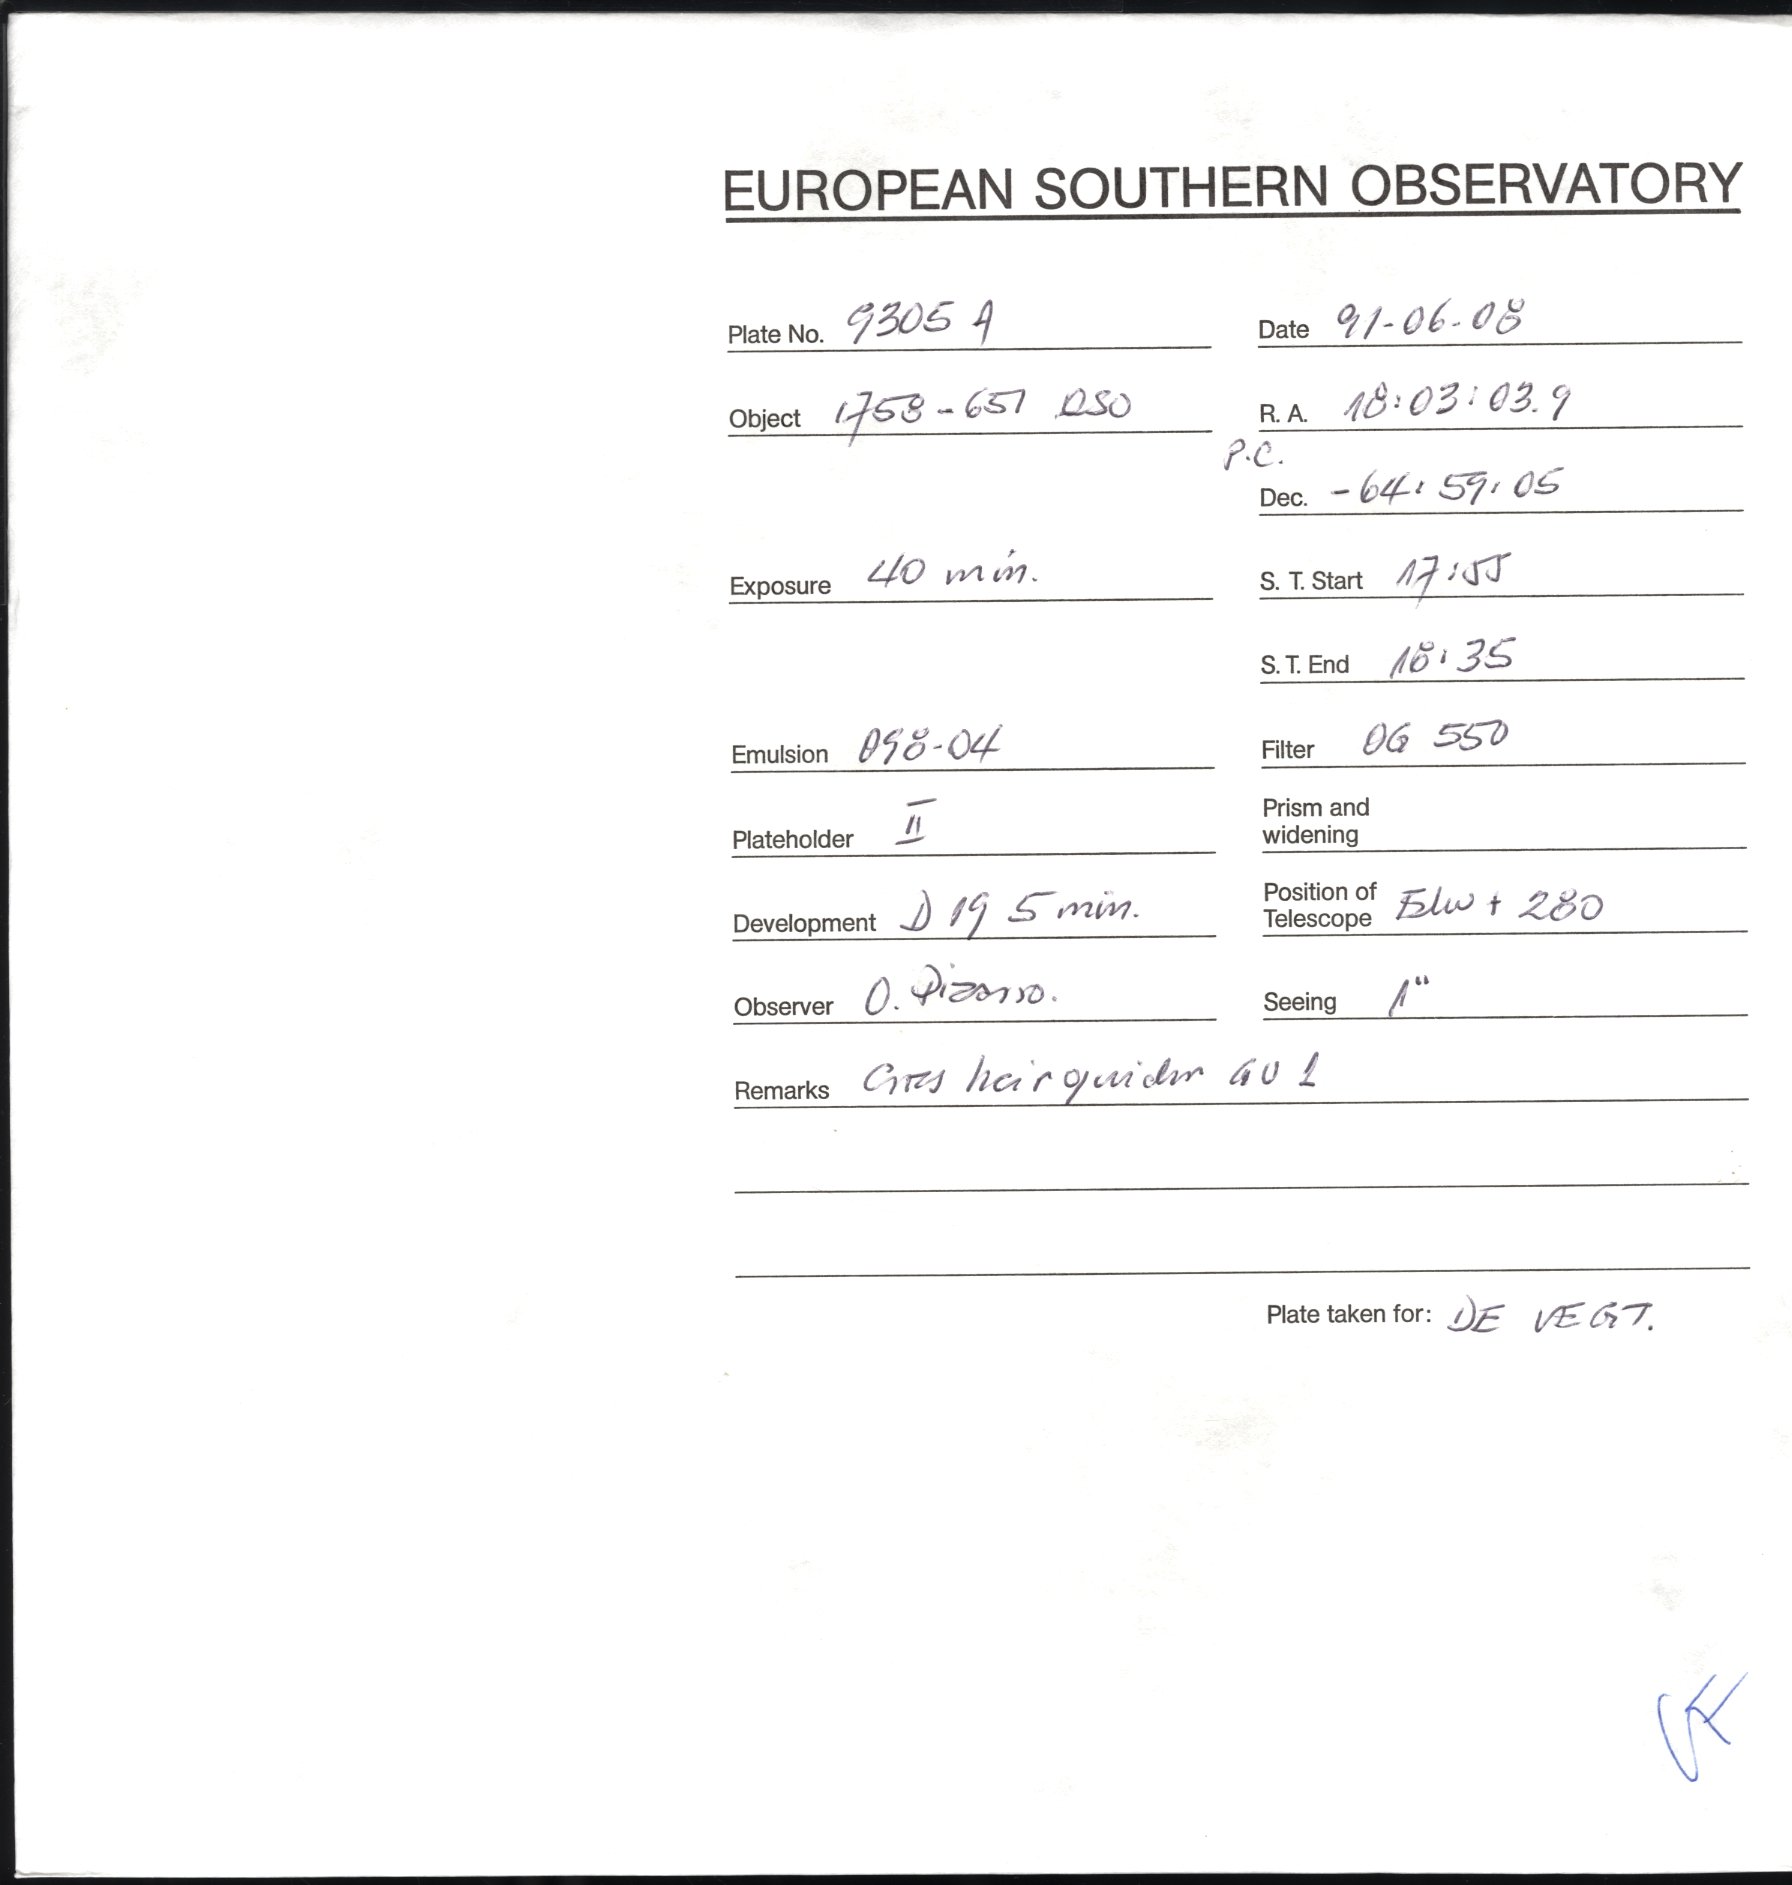 EUROPEAN SOUTHERN OBSERVATORY
Plate No. 9305 A
Date 91-06-08
Object 1758-651 QSO
R. A. 18:03:03.9
P.C.
Dec. -64:59:05
Exposure 40 min.
S. T. Start 17:55
S. T. End 18:35
Emulsion 098-04
Filter OG 550
Plateholder II
Prism and
widening
Development D 19 5 min.
Position of
Telescope + 280
Observer O. Pizarro.
Seeing 1"
Remarks hair
Plate taken for: DE VEGT.